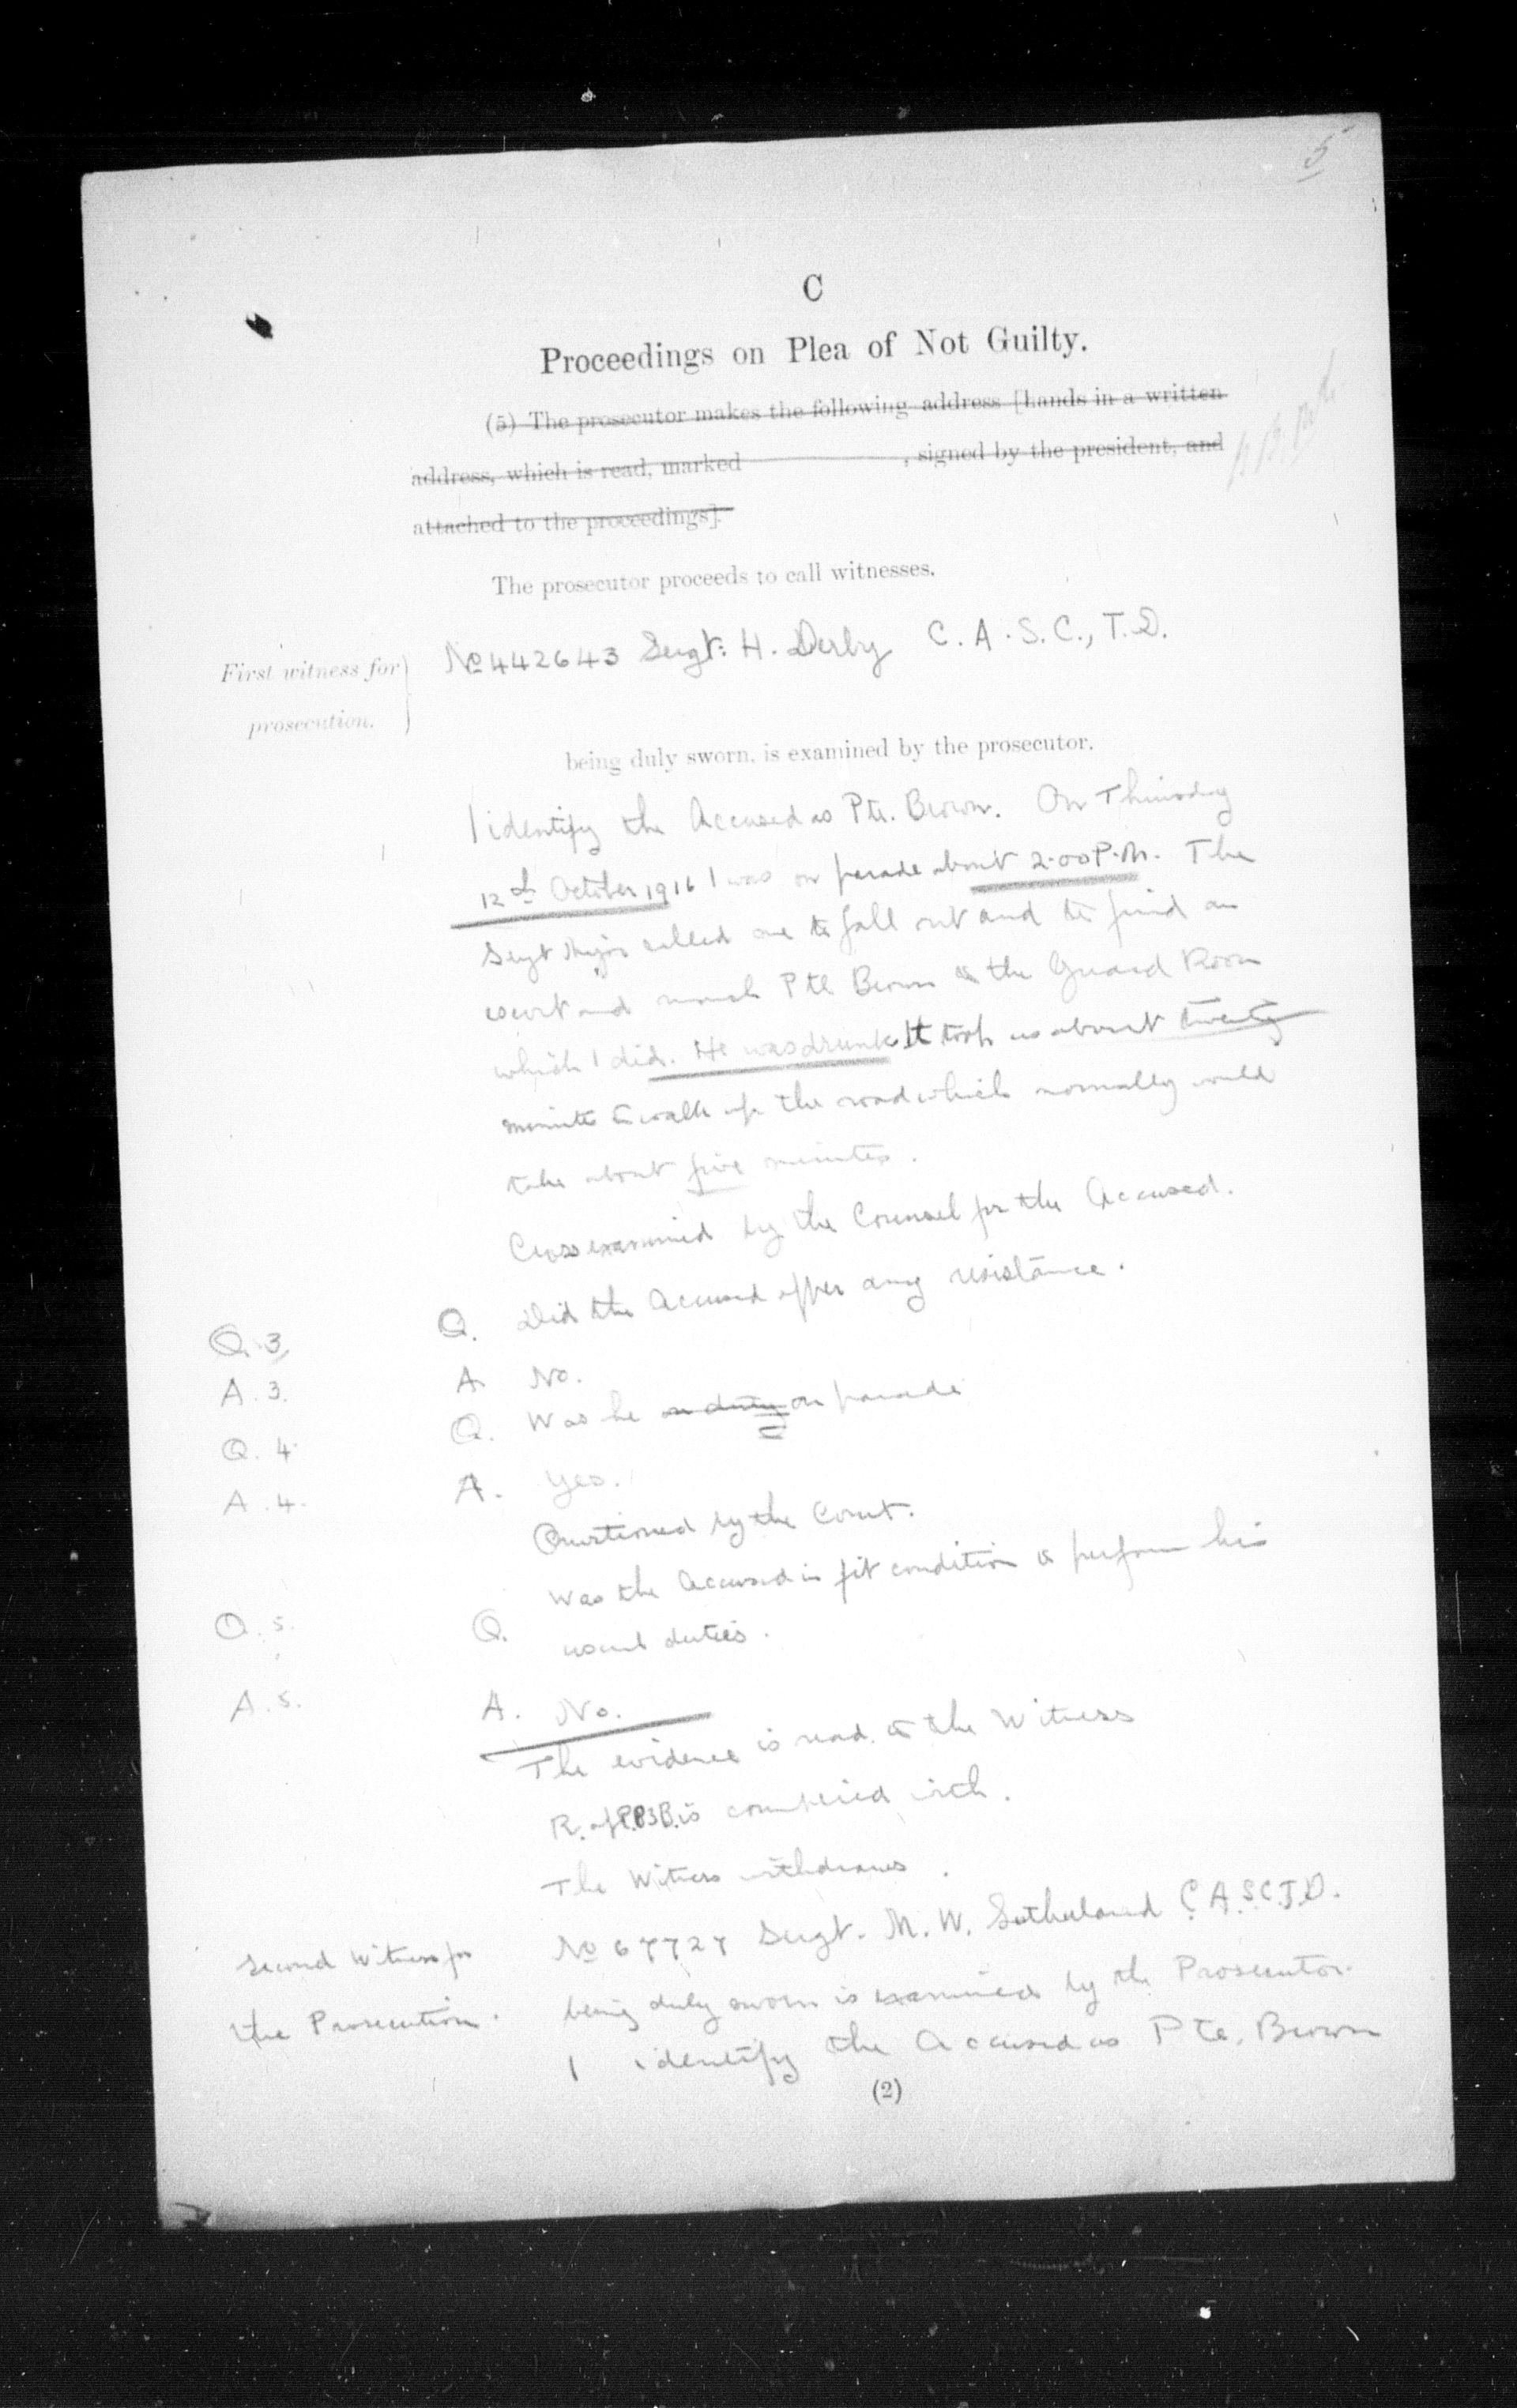 5
C
Proceedings on Plea of Not Guilty.
(5) The prosecutor makes the following address [hands in a written
address, which is read, marked , signed by the president, and
attached to the proceedings].
The prosecutor proceeds to call witnesses.
First witness for
prosecution.
No 442643 Sergt: H. Derby C.A.S.C., T.D.
being duly sworn, is examined by the prosecutor.
I identify the Accused as Pte. Brown. On Thursday
12th October 1916 I was on parade about 2.00 P.M. The
Sergt Major called me to fall out and to find an
escort and march Pte Brown to the Guard Room
which I did. He was drunk. It took us about twenty
minutes to walk up the road which normally would
take about five minutes.
Cross examined by the Counsel for the Accused.
Q.3. Q. Did the Accused offer any resistance.
A.3. A. No.
Q.4. Q. Was he on duty on parade
A.4. A. Yes.
Questioned by the Court.
Q.5. Q. Was the Accused in fit condition to perform his
usual duties.
A.5. A. No.
The evidence is read to the Witness
R. of P. 83B. is complied with.
The Witness withdraws.
Second Witness for
the Prosecution.
No 67727 Sergt. M. W. Sutherland C.A.S.C.T.D.
being duly sworn is examined by the Prosecutor.
I identify the Accused as Pte. Brown
(2)